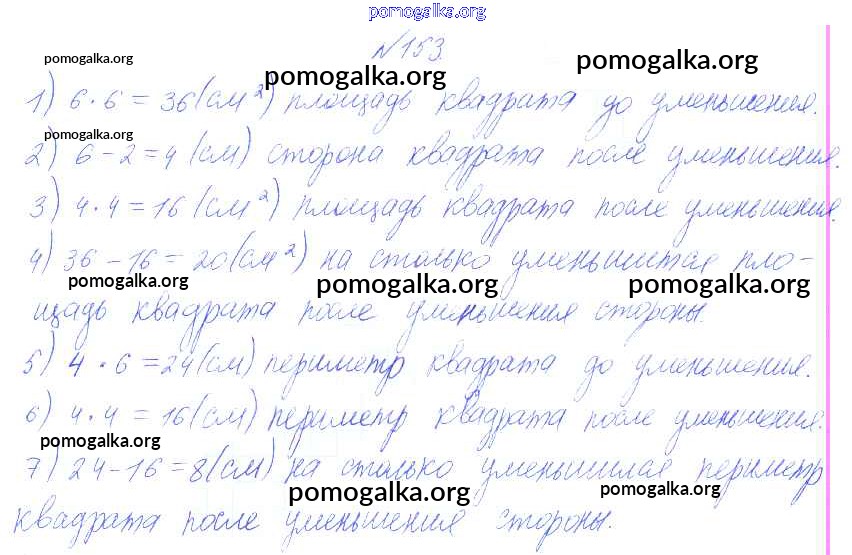 pomogalka.org
№153.
pomogalka.org
pomogalka.org
pomogalka.org
1) 6·6=36(см²) площадь квадрата до уменьшения.
pomogalka.org
2) 6-2=4(см) сторона квадрата после уменьшения.
3) 4·4=16(см²) площадь квадрата после уменьшения.
4) 36-16=20(см²) на столько уменьшитая пло-
pomogalka.org
pomogalka.org
pomogalka.org
щадь квадрата после уменьшения стороны.
5) 4·6=24(см) периметр квадрата до уменьшения.
6) 4·4=16(см) периметр квадрата после уменьшения.
pomogalka.org
7) 24-16=8(см) на столько уменьшилая периметр
pomogalka.org
pomogalka.org
квадрата после уменьшения стороны.